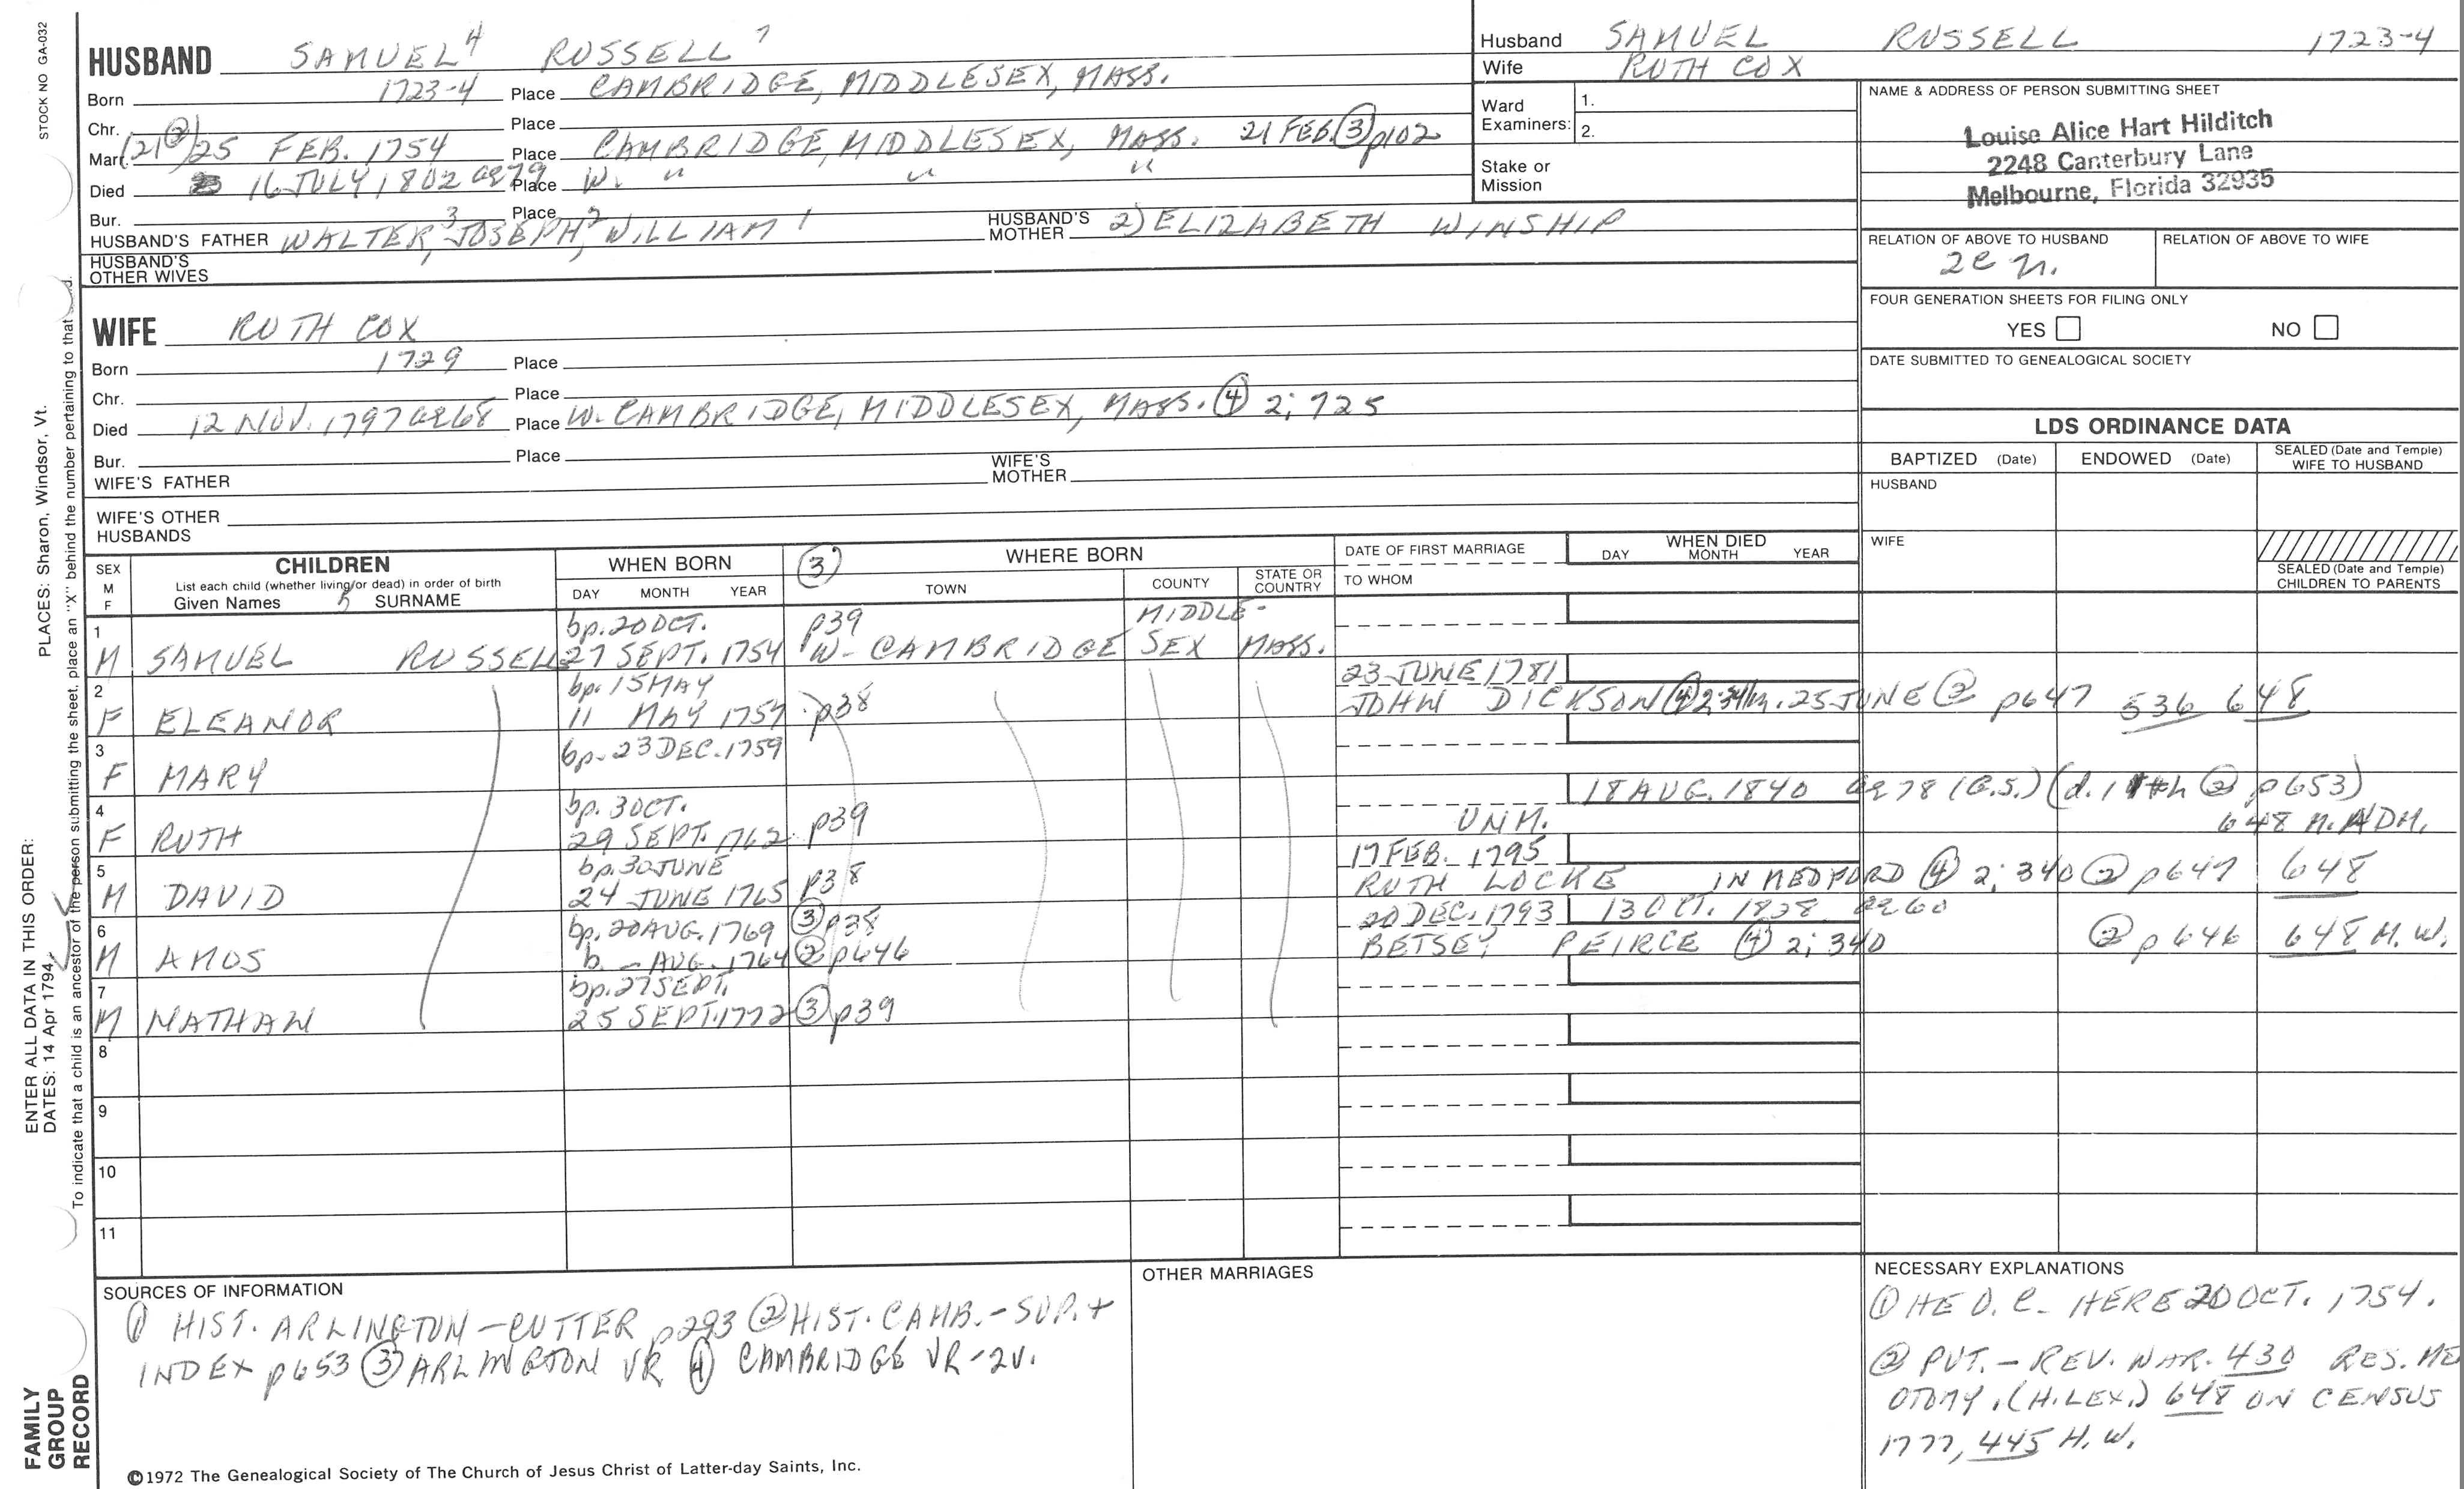 STOCK NO GA-032
HUSBAND SAMUEL 4 RUSSELL 7
Born 1723-4 Place CAMBRIDGE, MIDDLESEX, MASS.
Chr. Place
Marr. (21 ②) 25 FEB. 1754 Place CAMBRIDGE, MIDDLESEX, MASS. 21 FEB. ③ p102
Died 16 JULY 1802 ae79 Place W. " " "
Bur. Place
HUSBAND'S FATHER WALTER 3, JOSEPH 2, WILLIAM 1 HUSBAND'S MOTHER 2) ELIZABETH WINSHIP
HUSBAND'S OTHER WIVES
Husband SAMUEL RUSSELL 1723-4
Wife RUTH COX
Ward Examiners: 1.
2.
Stake or Mission
NAME & ADDRESS OF PERSON SUBMITTING SHEET
Louise Alice Hart Hilditch
2248 Canterbury Lane
Melbourne, Florida 32935
RELATION OF ABOVE TO HUSBAND RELATION OF ABOVE TO WIFE
FOUR GENERATION SHEETS FOR FILING ONLY
YES NO
DATE SUBMITTED TO GENEALOGICAL SOCIETY
WIFE RUTH COX
Born 1729 Place
Chr. Place
Died 12 NOV. 1797 ae68 Place W. CAMBRIDGE, MIDDLESEX, MASS. ④ 2; 725
Bur. Place
WIFE'S FATHER WIFE'S MOTHER
WIFE'S OTHER HUSBANDS
LDS ORDINANCE DATA
BAPTIZED (Date) ENDOWED (Date) SEALED (Date and Temple) WIFE TO HUSBAND
HUSBAND
WIFE
SEALED (Date and Temple) CHILDREN TO PARENTS
SEX M F
CHILDREN
List each child (whether living/or dead) in order of birth
Given Names 5 SURNAME
WHEN BORN
DAY MONTH YEAR
③ WHERE BORN
TOWN COUNTY STATE OR COUNTRY
DATE OF FIRST MARRIAGE
TO WHOM
WHEN DIED
DAY MONTH YEAR
1 bp. 20 OCT. p39 MIDDLE-
M SAMUEL RUSSELL 27 SEPT. 1754 W- CAMBRIDGE SEX MASS.
2 bp. 15 MAY 23 JUNE 1781
F ELEANOR 11 MAY 1757 p38 JOHN DICKSON ④ m. 25 JUNE ② p647 536 648
3 bp. 23 DEC. 1759
F MARY
4 bp. 3 OCT. 18 AUG. 1840 ae78 (G.S.) (d. ② p653)
F RUTH 29 SEPT. 1762 p39 UNM. 648 N. ADM.
5 bp. 30 JUNE 17 FEB. 1795
M DAVID 24 JUNE 1765 p38 RUTH LOCKE IN MEDFORD ④ 2; 340 ② p647 648
6 bp. 20 AUG. 1769 ③ p38 20 DEC. 1793 13 OCT. 1828 ae60
M AMOS b. - AUG. 1764 ② p646 BETSEY PEIRCE ④ 2; 340 ② p646 648 M.W.
7 bp. 27 SEPT.
M NATHAN 25 SEPT. 1772 ③ p39
8
9
10
11
SOURCES OF INFORMATION
① HIST. ARLINGTON - CUTTER p293 ② HIST. CAMB. - SUP. +
INDEX p653 ③ ARLINGTON VR ④ CAMBRIDGE VR - 2V.
OTHER MARRIAGES
NECESSARY EXPLANATIONS
① HE O.C. HERE 20 OCT. 1754.
② PVT. - REV. WAR. 430 RES. ME
OTOMY. (H. LEX.) 648 ON CENSUS
1777, 445 H.W.
©1972 The Genealogical Society of The Church of Jesus Christ of Latter-day Saints, Inc.
FAMILY GROUP RECORD
ENTER ALL DATA IN THIS ORDER:
DATES: 14 Apr 1794
PLACES: Sharon, Windsor, Vt.
To indicate that a child is an ancestor of the person submitting the sheet, place an "X" behind the number pertaining to that